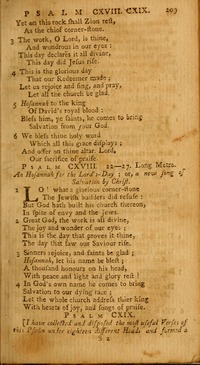 PSALM CXVIII. CXIX. 203
Yet on this rock shall Zion rest,
As the chief corner-stone.
3 The work, O Lord, is thine,
And wondrous in our eyes:
This day declares it all divine,
This day did Jesus rise.
4 This is the glorious day
That our Redeemer made;
Let us rejoice and sing, and pray,
Let all the church be glad.
5 Hosannah to the king
Of David's royal blood:
Bless him, ye saints, he comes to bring
Salvation from your God.
6 We bless thine holy word
Which all this grace displays;
And offer on thine altar, Lord,
Our sacrifice of praise.
PSALM CXVIII. 22—27. Long Metre.
An Hosannah for the Lord's-Day; or, a new song of
Salvation by Christ.
1 LO! what a glorious corner-stone
The Jewish builders did refuse:
But God hath built his church thereon,
In spite of envy and the Jews.
2 Great God, the work is all divine,
The joy and wonder of our eyes;
This is the day that proves it thine,
The day that saw our Saviour rise.
3 Sinners rejoice, and saints be glad;
Hosannah, let his name be blest;
A thousand honours on his head,
With peace and light and glory rest!
4 In God's own name he comes to bring
Salvation to our dying race;
Let the whole church address their king
With hearts of joy, and songs of praise.
PSALM CXIX.
[I have collected and disposed the most useful Verses of
this Psalm under eighteen different Heads and formed a
S 2